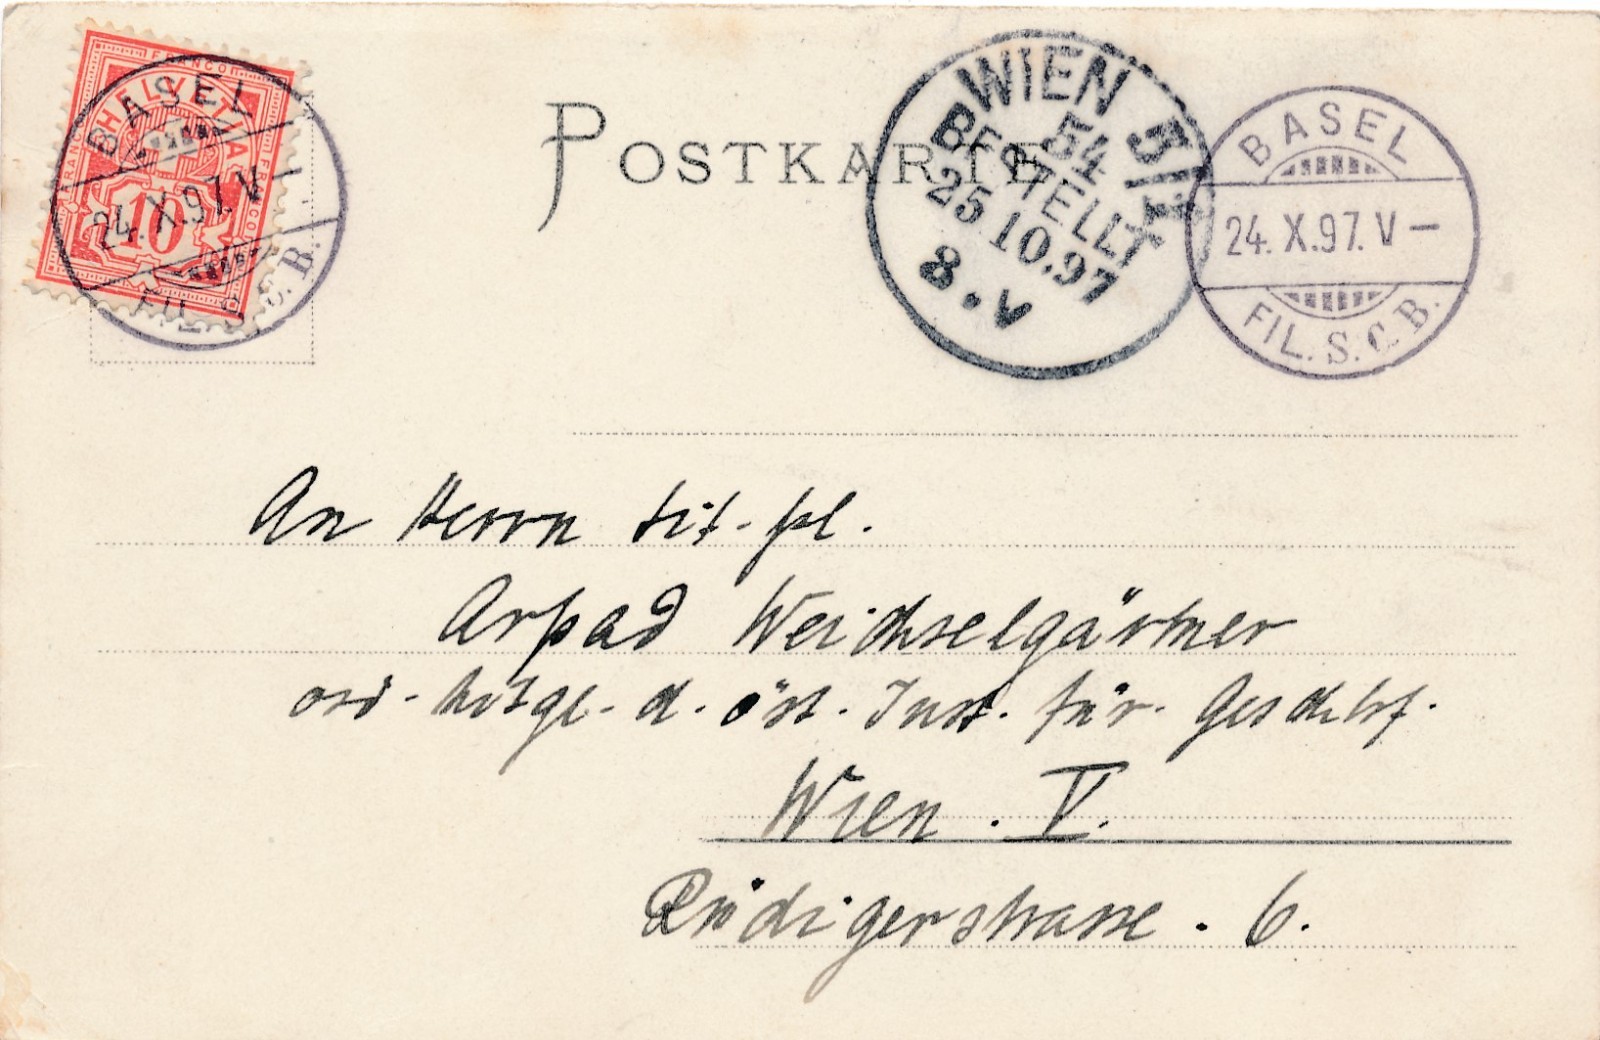 FRANCO
HELVETIA
FRANCO
FRANCO
10
BASEL
24. X.97. V
FIL. S. C. B.
POSTKARTE
WIEN 5/1
54
BESTELLT
25.10.97
8.V
BASEL
24. X.97. V –
FIL. S. C. B.
An Herrn
Arpad Weichselgärtner
ord. d. öst. Inst. für
Wien. V.
Rüdigerstrasse. 6.